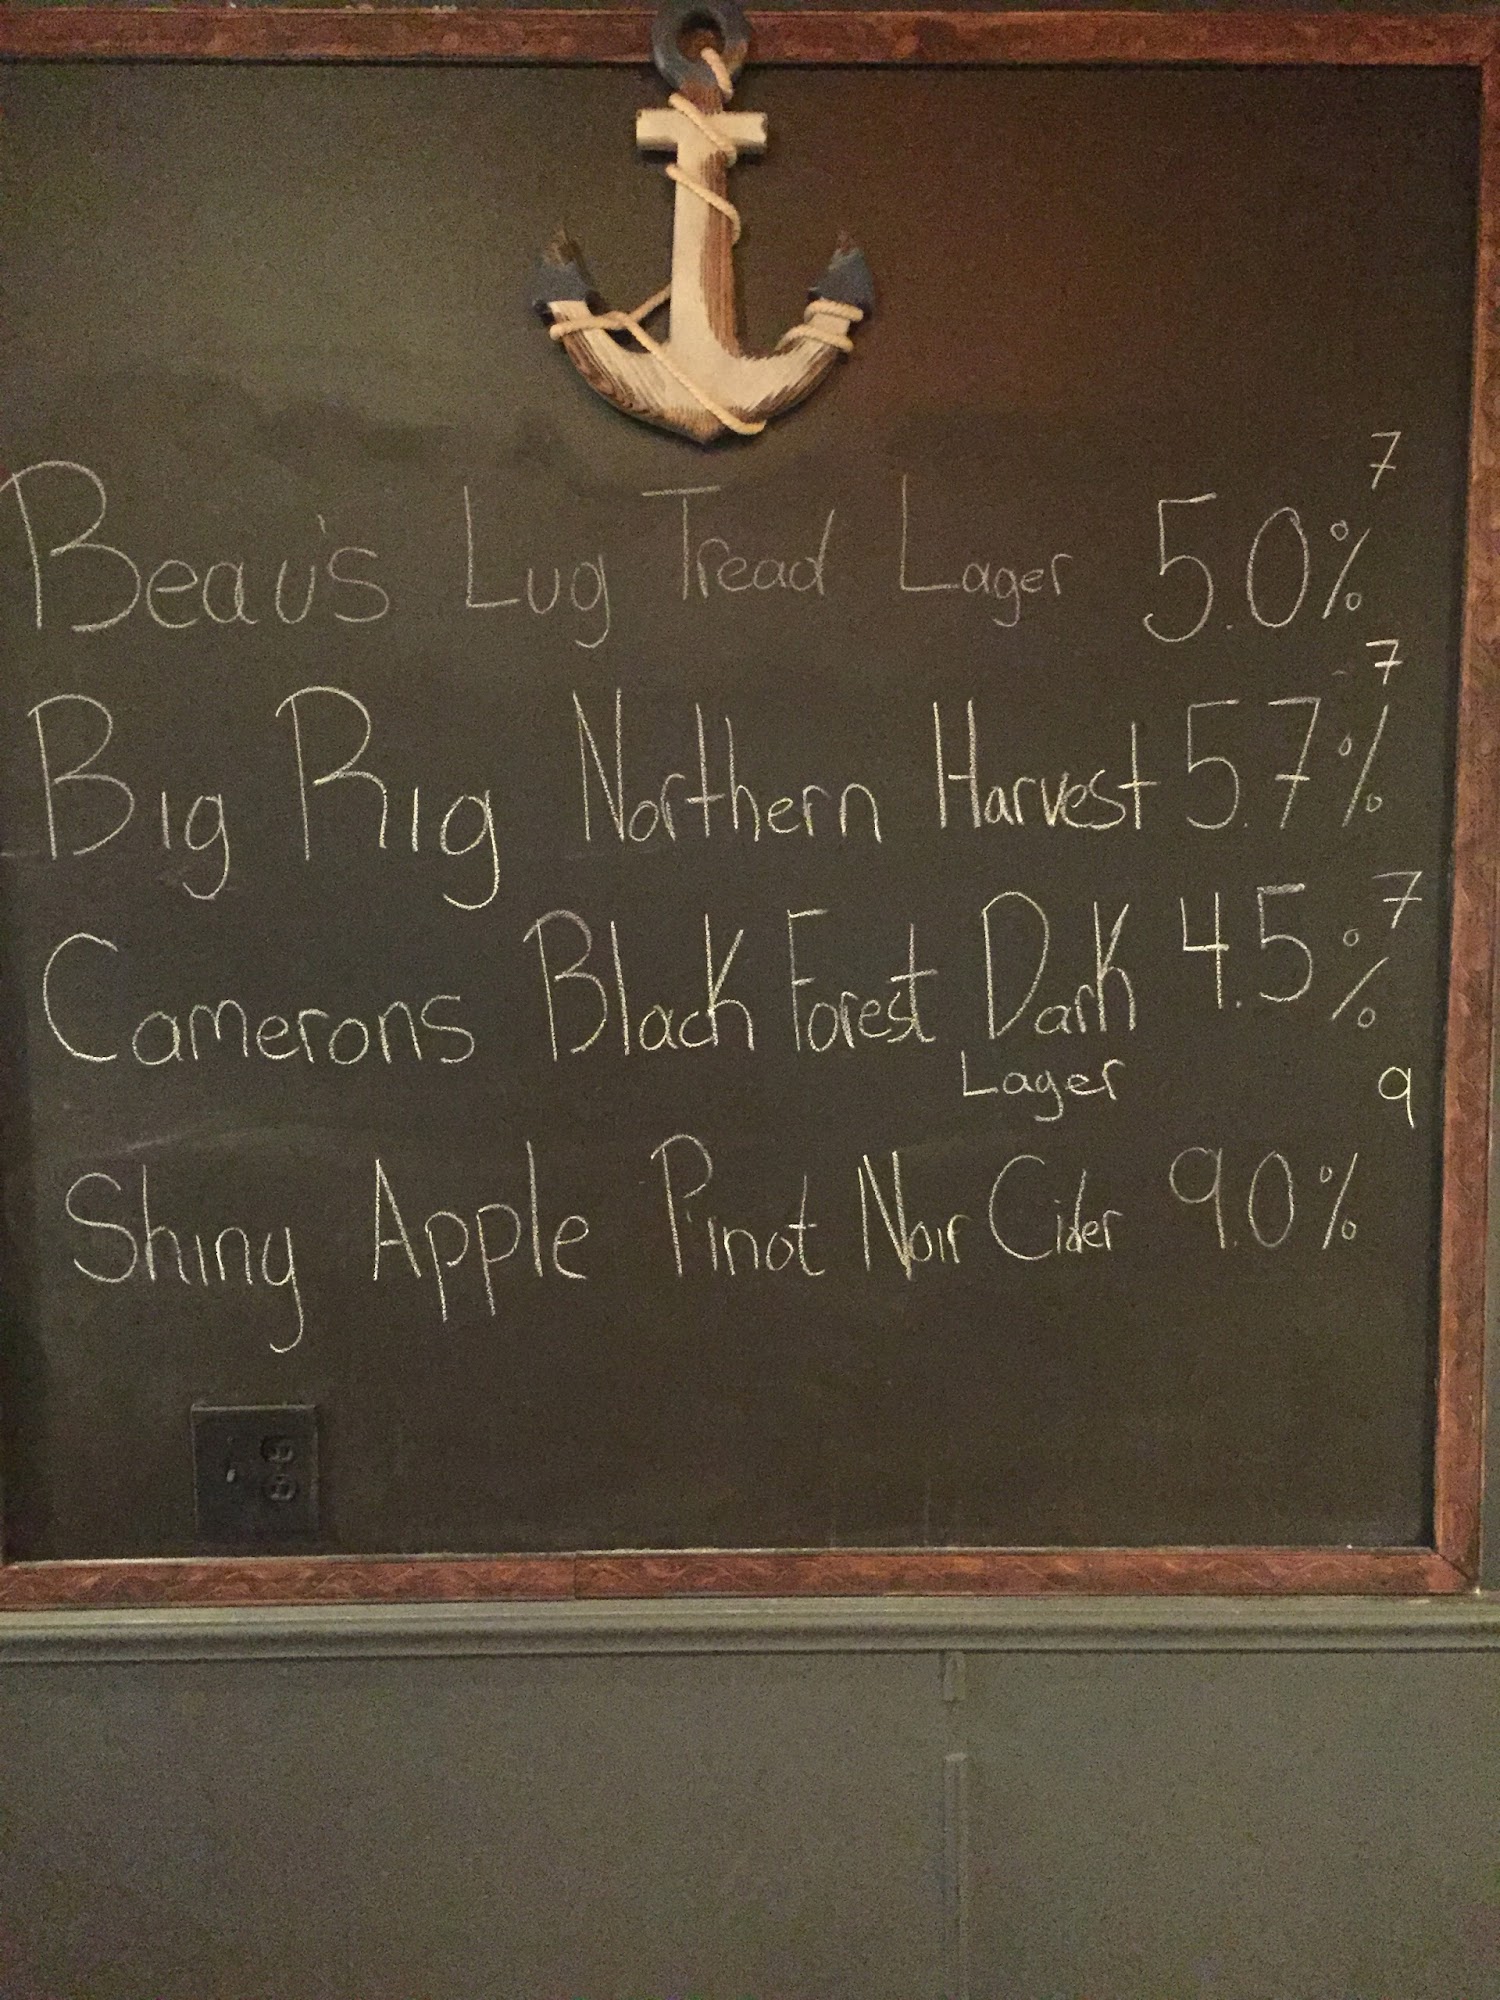 7
Beau's Lug Tread Lager 5.0%
7
Big Rig Northern Harvest 5.7%
7
Camerons Black Forest Dark 4.5%
Lager
9
Shiny Apple Pinot Noir Cider 9.0%